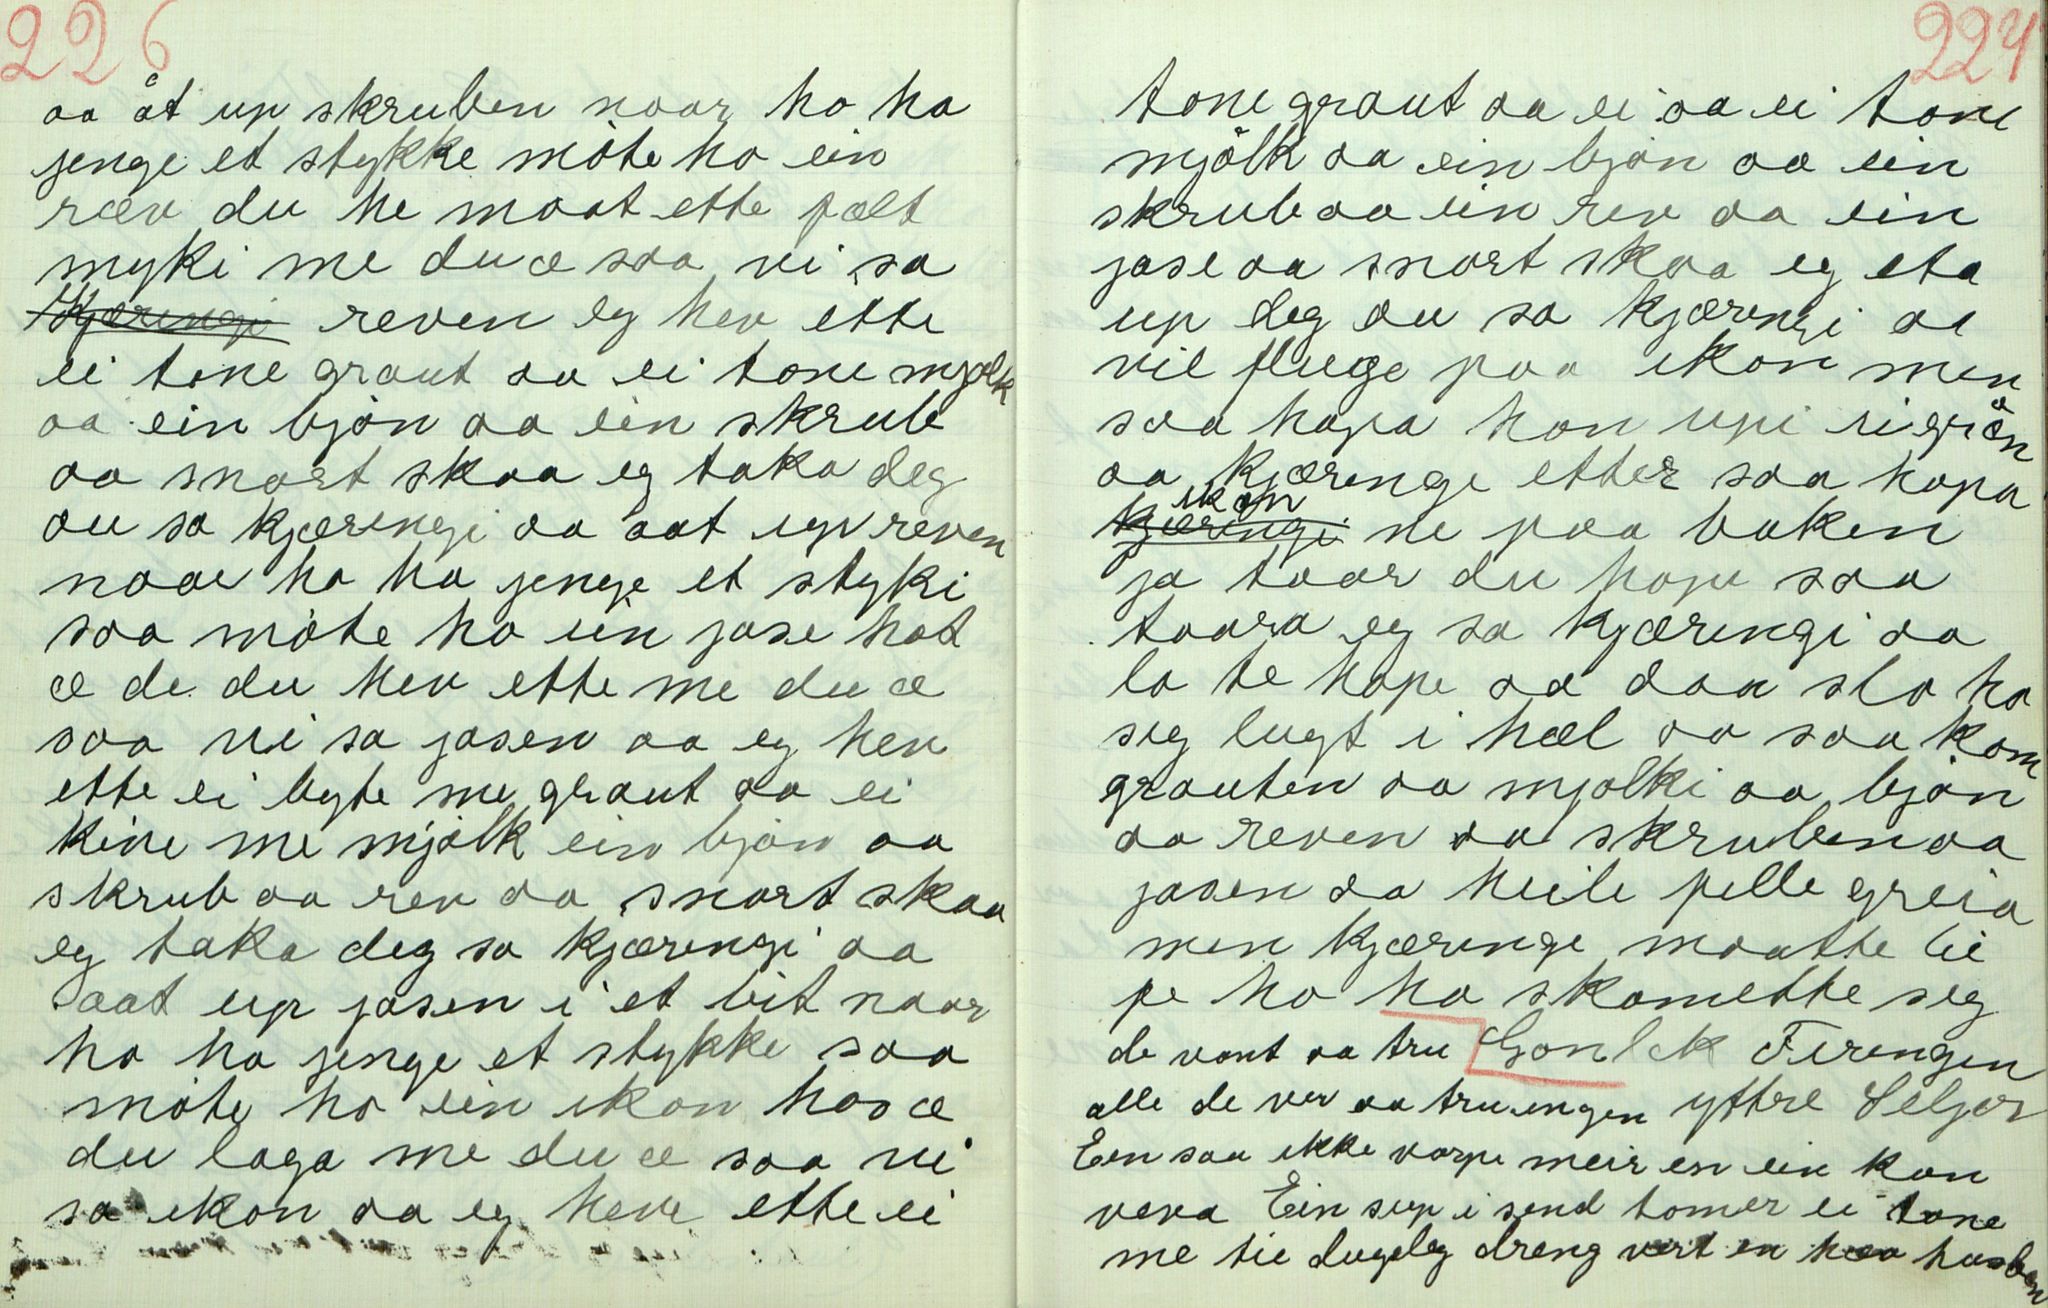 226
aa åt up skruben naar ho ha
jenge et stykke møte ho ein
ræv du he maat ette pælt
myki me du æ saa vi sa
kjæringi reven eg hev ette
ei tone graut aa ei tone mjølk
aa ein bjøn aa ein skrub
aa snart skaa eg taka deg
au sa kjæringi aa aat up reven
naar ho ha jenge et styki
saa møte ho ein jase hot
æ de du hev ette me du æ
saa vi sa jasen aa eg hev
ette ei byte me graut aa ei
kine me mjølk ein bjøn aa
skrub aa rev aa snart skaa
eg taka deg sa kjæringi aa
aat up jasen i et bit naar
ho ha jenge et stykke saa
møte ho ein ikon hos æ
du laga me du æ saa vi
sa ikon aa eg heve ette ei
227
tone graut aa ei aa ei tone
mjølk aa ein bjøn aa ein
skrub aa ein rev aa ein
jase aa snart skaa eg eta
up deg au sa kjæringi aa
vil fluge paa ikon men
saa hapa hon upi ei grøn
aa kjæringe etter saa hapa
kjæringi ikon ne paa baken
ja taar du hope saa
taara eg sa kjæringi aa
la te hope aa daa slo ho
seg lugt i hæl aa saa kom
grauten aa mjølki aa bjøn
aa reven aa skruben aa
jasen aa heile pelle greia
men kjæringe maatte lie
pe ho ha skamette seg
de vont aa tru Gonlek Feringen
alle de ver aa tru ingen yttre Seljor
Een saa ikke varpe meir en ein kan
veva Ein sup i send tømer ei tone
me tie dugeleg dreng vert en haa husben